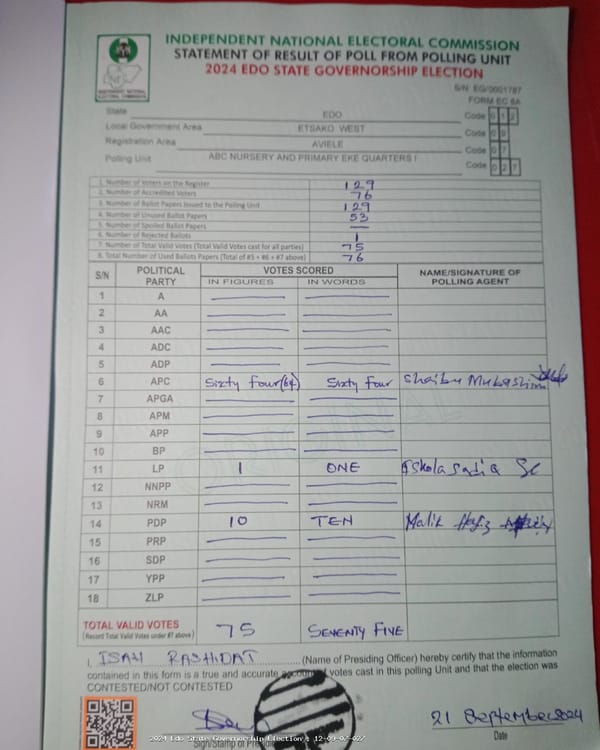 INDEPENDENT NATIONAL ELECTORAL COMMISSION
STATEMENT OF RESULT OF POLL FROM POLLING UNIT
2024 EDO STATE GOVERNORSHIP ELECTION
INDEPENDENT NATIONAL ELECTORAL COMMISSION
S/N: EG/0001787
FORM EC 8A
State EDO Code 0 1 2
Local Government Area ETSAKO WEST Code 0 9
Registration Area AVIELE Code 0 7
Polling Unit ABC NURSERY AND PRIMARY EKE QUARTERS I Code 0 2 7
1. Number of Voters on the Register 129
2. Number of Accredited Voters 76
3. Number of Ballot Papers Issued to the Polling Unit 129
4. Number of Unused Ballot Papers 53
5. Number of Spoiled Ballot Papers —
6. Number of Rejected Ballots 1
7. Number of Total Valid Votes (Total Valid Votes cast for all parties) 75
8. Total Number of Used Ballots Papers (Total of #5 + #6 + #7 above) 76
S/N POLITICAL PARTY VOTES SCORED NAME/SIGNATURE OF POLLING AGENT
IN FIGURES IN WORDS
1 A — —
2 AA — —
3 AAC — —
4 ADC — —
5 ADP — —
6 APC Sixty four(64) Sixty four Shaibu
7 APGA — —
8 APM — —
9 APP — —
10 BP — —
11 LP 1 ONE
12 NNPP — —
13 NRM — —
14 PDP 10 TEN Malik Hafiz
15 PRP — —
16 SDP — —
17 YPP — —
18 ZLP — —
TOTAL VALID VOTES 75 SEVENTY FIVE
(Record Total Valid Votes under #7 above)
I, ISAH RASHIDAT (Name of Presiding Officer) hereby certify that the information
contained in this form is a true and accurate account of votes cast in this polling Unit and that the election was
CONTESTED/NOT CONTESTED
21 September 2024
2024 Edo State Governorship Election
Sign/Stamp of
Date